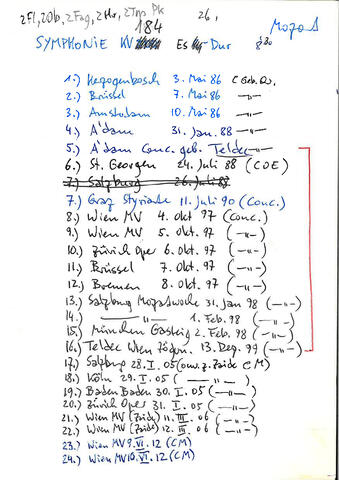 2Fl, 2Ob, 2Fag, 2Hr, 2Trp, Pk 26,
184 Mozart
SYMPHONIE KV Es Dur 8'30
1.) Herzogenbosch 3. Mai 86 (Geb.Ov.)
2.) Brüssel 7. Mai 86 —"—
3.) Amsterdam 10. Mai 86 —"—
4.) A'dam 31. Jan. 88 —"—
5.) A'dam Conc. geb. Teldec
6.) St. Georgen 24. Juli 88 (COE)
7.) Salzburg 26. Juli 88
7.) Graz Styriarte 11. Juli 90 (Conc.)
8.) Wien MV 4. Okt 97 (Conc.)
9.) Wien MV 5. Okt. 97 (—"—)
10.) Zürich Oper 6. Okt. 97 (—"—)
11.) Brüssel 7. Okt. 97 (—"—)
12.) Bremen 8. Okt. 97 (—"—)
13.) Salzburg Mozartwoche 31. Jan 98 (—"—)
14.) —"— 1. Feb. 98 (—"—)
15.) München Gasteig 2. Feb. 98 (—"—)
16.) Teldec Wien Zögern. 13. Dez. 99 (—"—)
17.) Salzburg 28. I. 05 (ouv. z. Zaide CM)
18.) Köln 29. I. 05 (—"—)
19.) Baden Baden 30. I. 05 (—"—)
20.) Zürich Oper 31. I. 05 (—"—)
21.) Wien MV (Zaide) 11. III. 06 (—"—)
22.) Wien MV (Zaide) 12. III. 06 (—"—)
23.) Wien MV 9. VI. 12 (CM)
24.) Wien MV 10. VI. 12 (CM)